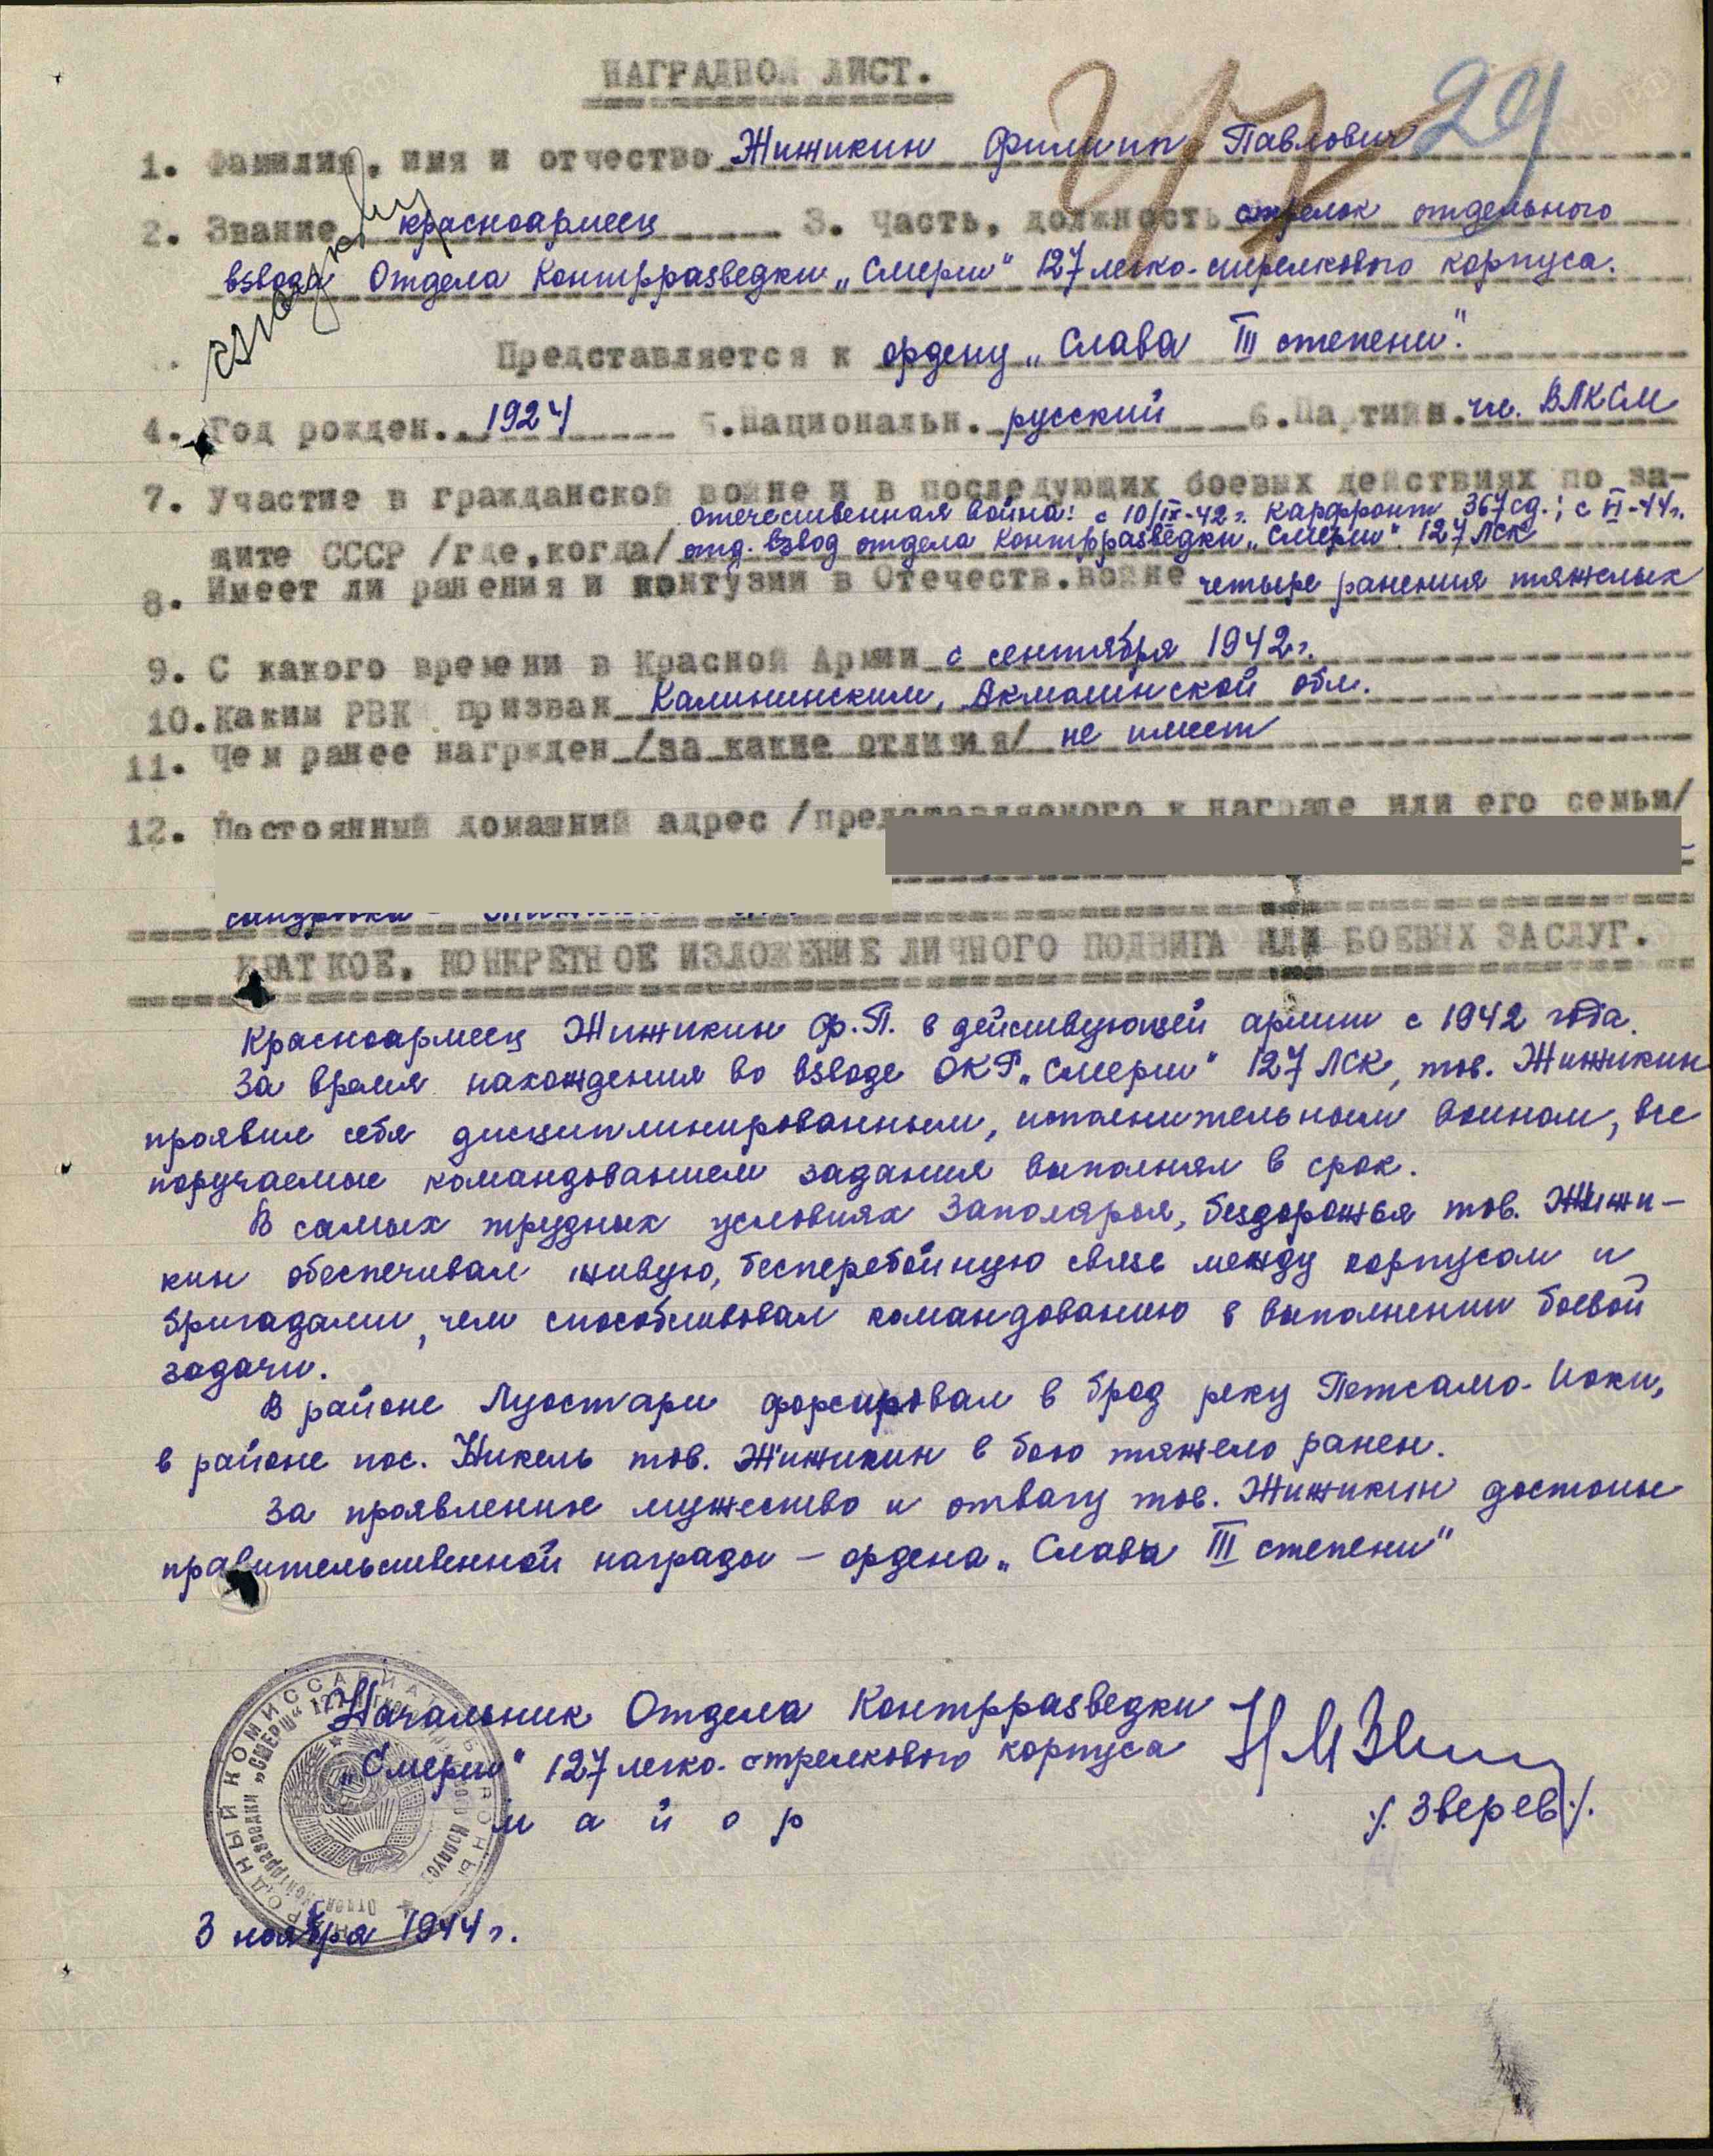 НАГРАДНОЙ ЛИСТ.
29
1. Фамилия, имя и отчество Жижикин Филипп Павлович
2. Звание красноармеец 3. Часть, должность стрелок отдельного
взвода Отдела Контрразведки „Смерш" 127 легко-стрелкового корпуса.
Представляется к ордену „Слава III степени".
4. Год рожден. 1924 5. Национальн. русский 6. Партийн. чл. ВЛКСМ
7. Участие в гражданской войне и в последующих боевых действиях по за-
отечественная война: с 10/IX-42 г. Карфронт 367 сд.; с VI-44 г.
щите СССР /где, когда/ отд. взвод отдела Контрразведки „Смерш" 127 ЛСК
8. Имеет ли ранения и контузии в Отечеств. войне четыре ранения тяжелых
9. С какого времени в Красной Армии с сентября 1942 г.
10. Каким РВК призван Калининским, Акмолинской обл.
11. Чем ранее награжден /за какие отличия/ не имеет
12. Постоянный домашний адрес /представляемого к награде или его семьи/
КРАТКОЕ, КОНКРЕТНОЕ ИЗЛОЖЕНИЕ ЛИЧНОГО ПОДВИГА ИЛИ БОЕВЫХ ЗАСЛУГ.
Красноармеец Жижикин Ф.П. в действующей армии с 1942 года.
За время нахождения во взводе ОКР „Смерш" 127 ЛСК, тов. Жижикин
проявил себя дисциплинированным, исполнительным воином, все
поручаемые командованием задания выполнял в срок.
В самых трудных условиях Заполярья, бездорожья тов. Жижи-
кин обеспечивал живую, бесперебойную связь между корпусом и
бригадами, чем способствовал командованию в выполнении боевой
задачи.
В районе Луостари форсировал в брод реку Петсамо-Йоки,
в районе пос. Никель тов. Жижикин в бою тяжело ранен.
За проявленное мужество и отвагу тов. Жижикин достоин
правительственной награды – ордена „Слава III степени"
Начальник Отдела Контрразведки
„Смерш" 127 легко-стрелкового корпуса
майор
/. Зверев /.
3 ноября 1944 г.